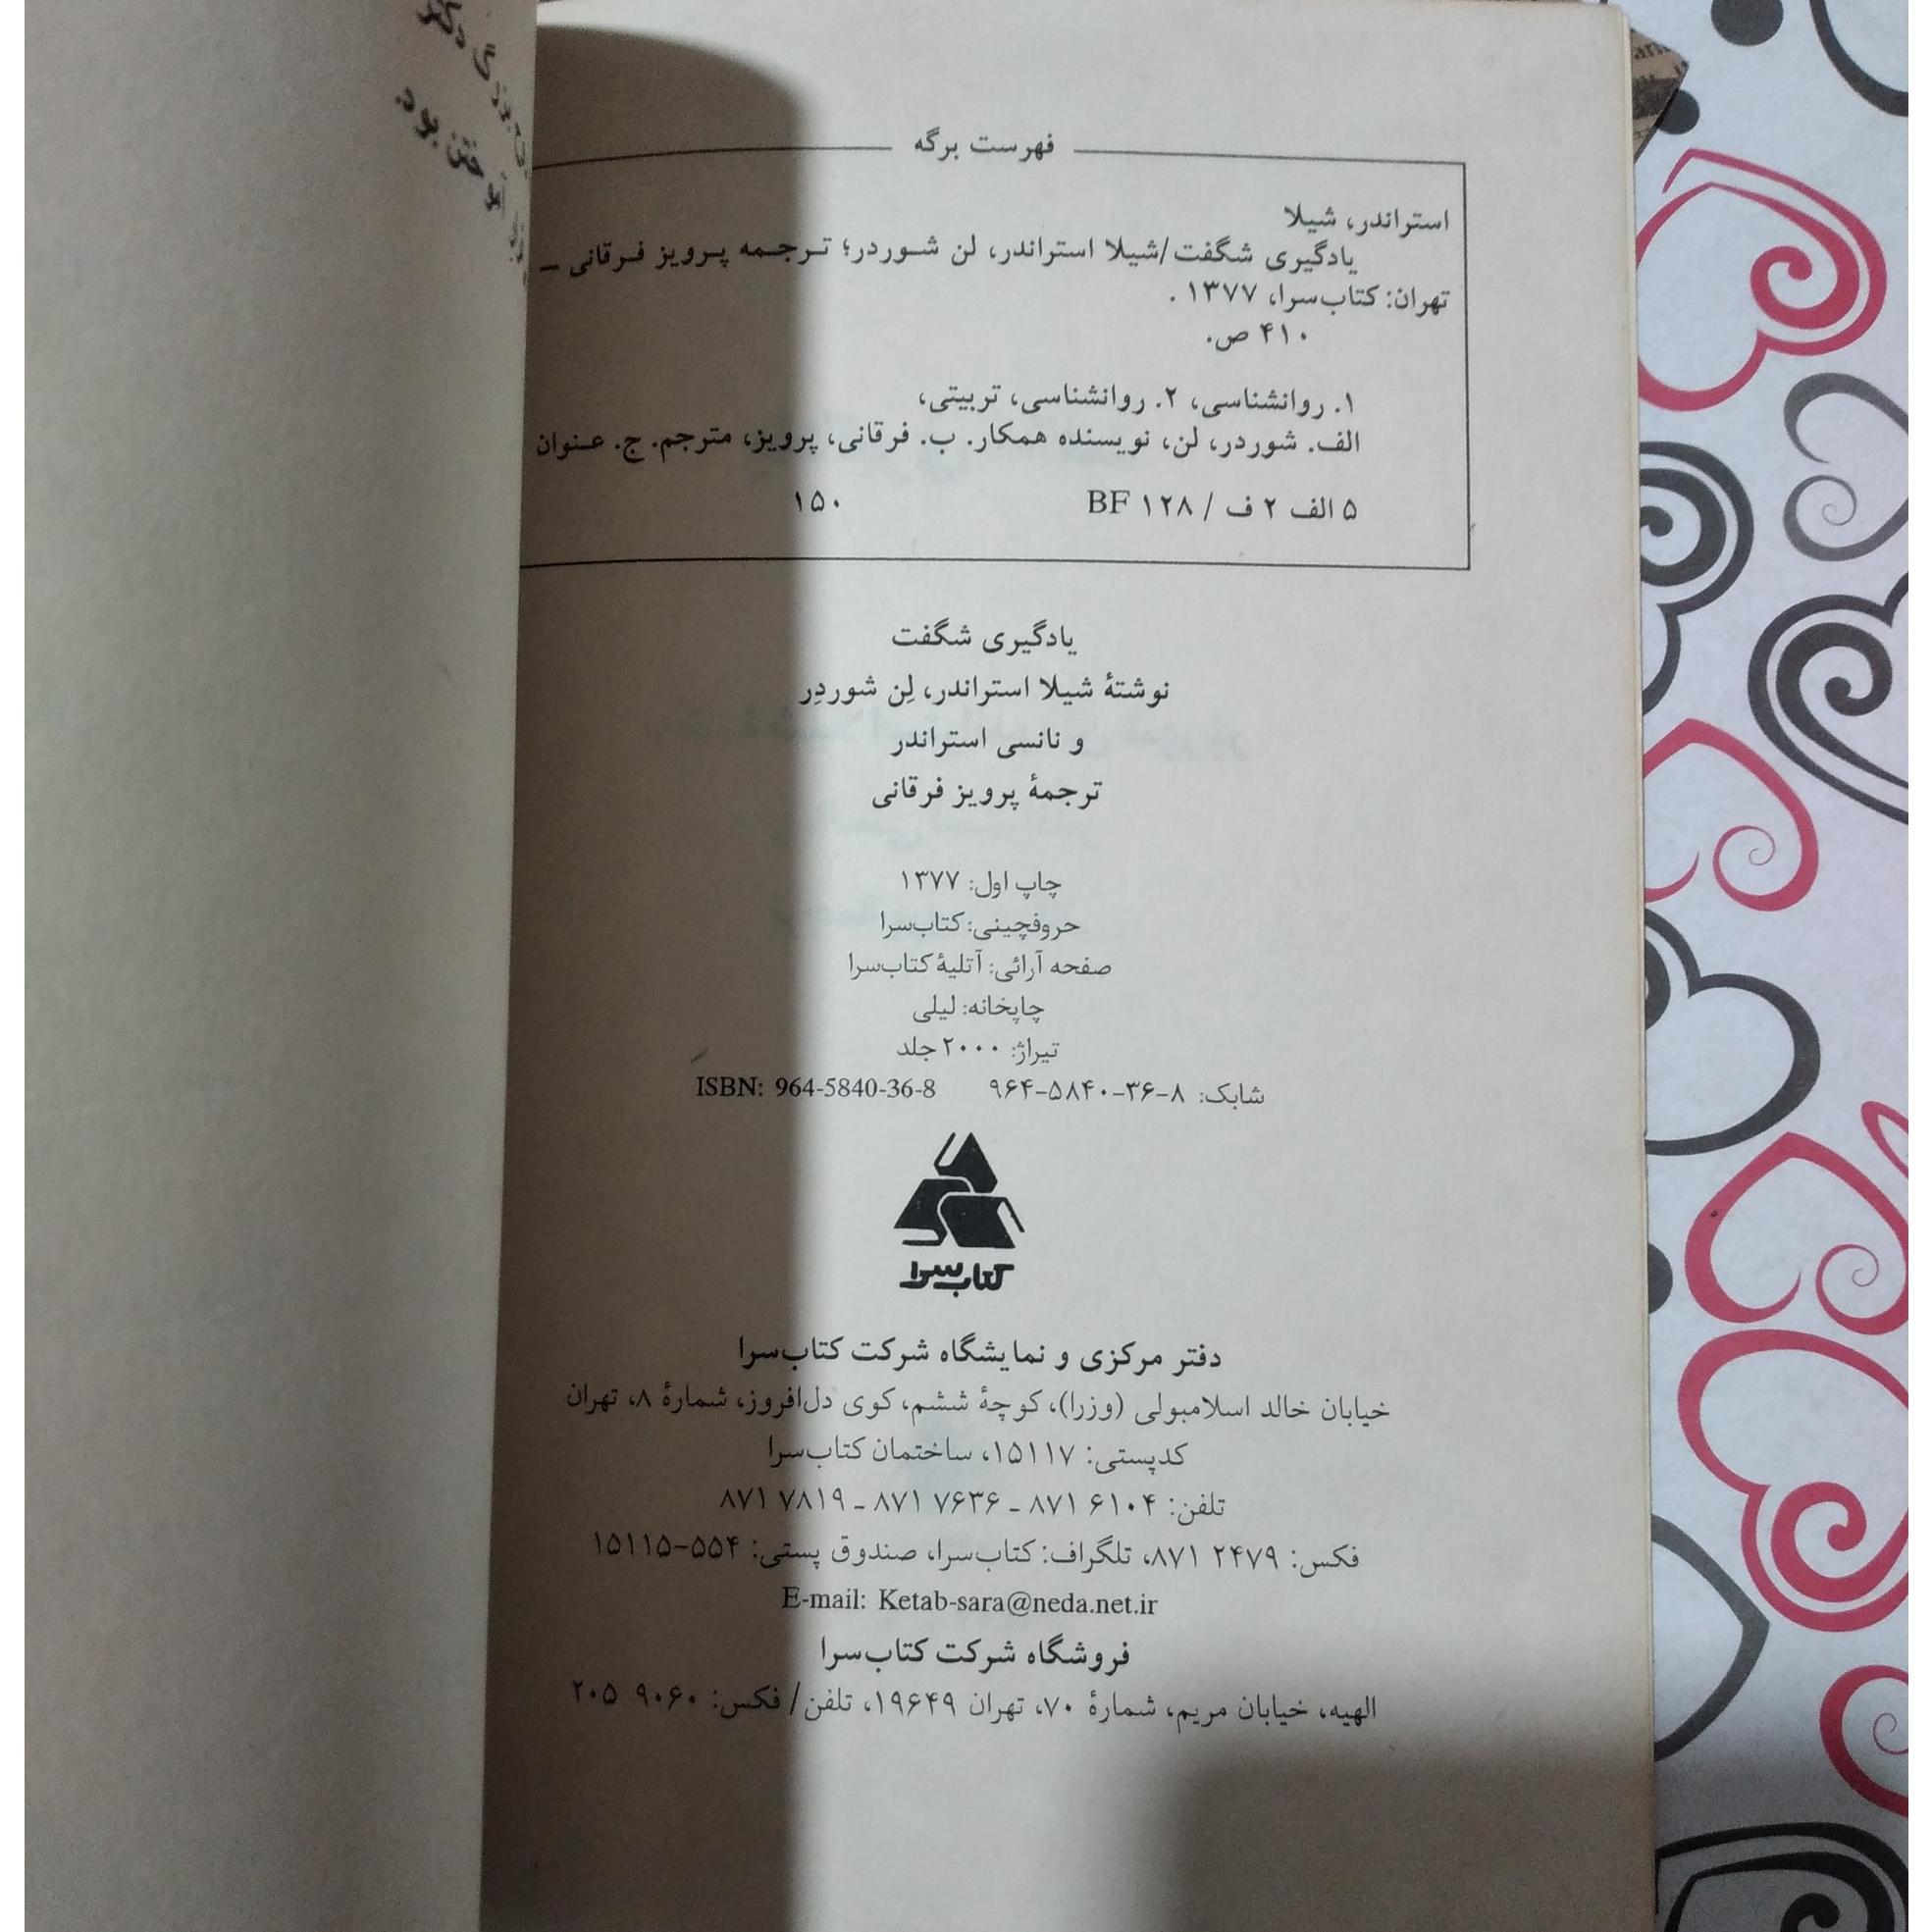 فهرست برگه
استراندر، شیلا
یادگیری شگفت/شیلا استراندر، لن شوردر؛ ترجمه پرویز فرقانی –
تهران: کتاب‌سرا، ۱۳۷۷ .
۴۱۰ ص.
۱. روانشناسی، ۲. روانشناسی، تربیتی،
الف. شوردر، لن، نویسنده همکار. ب. فرقانی، پرویز، مترجم. ج. عنوان
۵ الف ۲ ف / ۱۲۸ BF ۱۵۰
یادگیری شگفت
نوشتهٔ شیلا استراندر، لِن شوردِر
و نانسی استراندر
ترجمهٔ پرویز فرقانی
چاپ اول: ۱۳۷۷
حروفچینی: کتاب‌سرا
صفحه آرائی: آتلیهٔ کتاب‌سرا
چاپخانه: لیلی
تیراژ: ۲۰۰۰ جلد
شابک: ۸-۳۶-۵۸۴۰-۹۶۴ ISBN: 964-5840-36-8
کتاب‌سرا
دفتر مرکزی و نمایشگاه شرکت کتاب‌سرا
خیابان خالد اسلامبولی (وزرا)، کوچهٔ ششم، کوی دل‌افروز، شمارهٔ ۸، تهران
کدپستی: ۱۵۱۱۷، ساختمان کتاب‌سرا
تلفن: ۶۱۰۴ ۸۷۱ ـ ۷۶۳۶ ۸۷۱ ـ ۷۸۱۹ ۸۷۱
فکس: ۲۴۷۹ ۸۷۱، تلگراف: کتاب‌سرا، صندوق پستی: ۵۵۴-۱۵۱۱۵
E-mail: Ketab-sara@neda.net.ir
فروشگاه شرکت کتاب‌سرا
الهیه، خیابان مریم، شمارهٔ ۷۰، تهران ۱۹۶۴۹، تلفن/ فکس: ۹۰۶۰ ۲۰۵